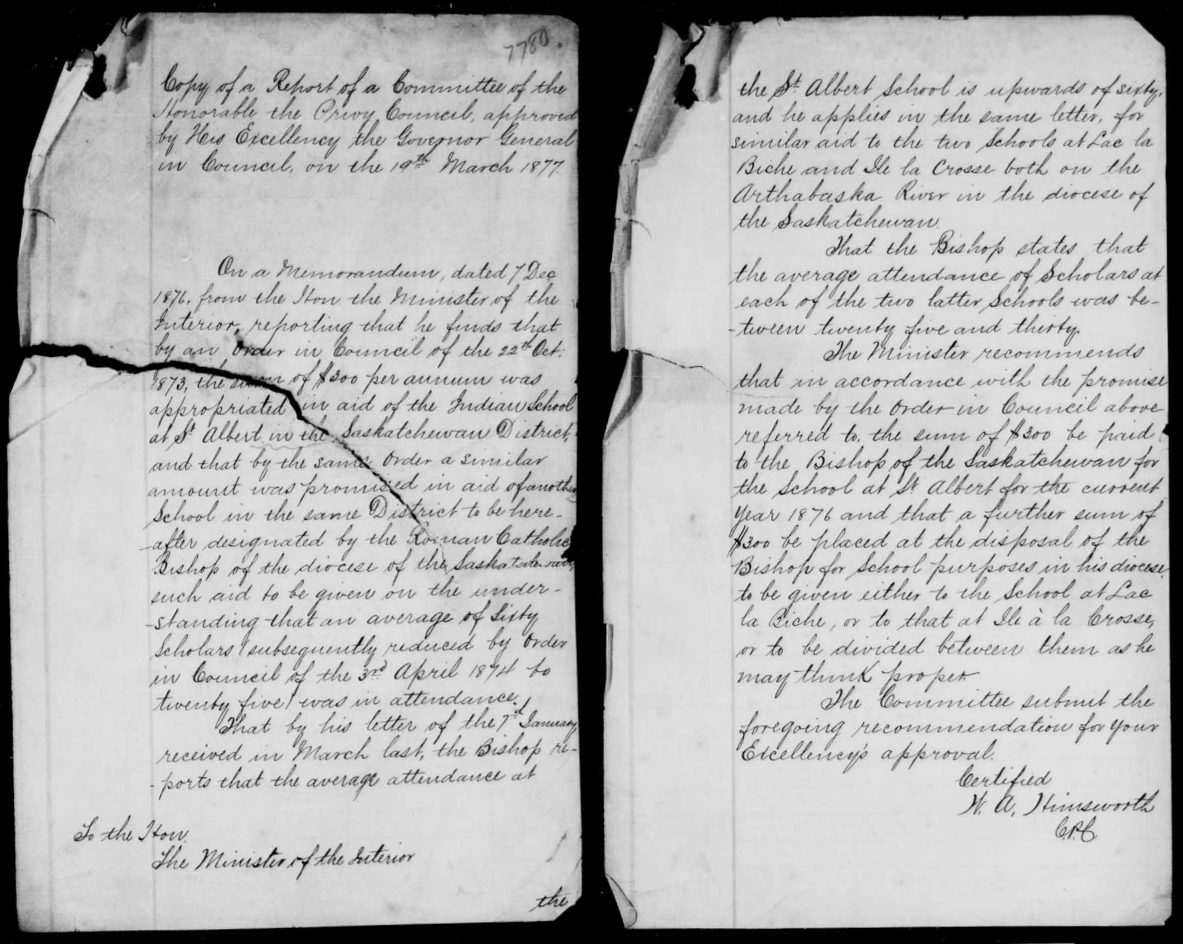 7780.
Copy of a Report of a Committee of the
Honorable the Privy Council, approved
by His Excellency the Governor General
in Council, on the 19th March 1877.
On a Memorandum, dated 7 Dec
1876, from the Hon the Minister of the
Interior, reporting that he finds that
by an Order in Council of the 22nd Oct:
1873, the sum of $300 per annum was
appropriated in aid of the Indian School
at St Albert in the Saskatchewan District,
and that by the same Order a similar
amount was promised in aid of another
School in the same District to be here-
-after designated by the Roman Catholic
Bishop of the diocese of the Saskatchewan,
such aid to be given on the under-
-standing that an average of Sixty
Scholars (subsequently reduced by Order
in Council of the 3rd April 1874 to
twenty five) was in attendance.
That by his letter of the 7th January
received in March last, the Bishop re-
-ports that the average attendance at
To the Hon.
The Minister of the Interior
the
the St Albert School is upwards of sixty,
and he applies in the same letter, for
similar aid to the two Schools at Lac la
Biche and Ile la Crosse both on the
Arthabaska River in the diocese of
the Saskatchewan
That the Bishop states that
the average attendance of Scholars at
each of the two latter Schools was be-
-tween twenty five and thirty.
The Minister recommends
that in accordance with the promise
made by the Order in Council above
referred to, the sum of $300 be paid
to the Bishop of the Saskatchewan for
the School at St Albert for the current
year 1876 and that a further sum of
$300 be placed at the disposal of the
Bishop for School purposes in his diocese,
to be given either to the School at Lac
la Biche, or to that at Ile à la Crosse,
or to be divided between them as he
may think proper
The Committee submit the
foregoing recommendation for Your
Excellency's approval.
Certified
W. A. Himsworth
C.P.C